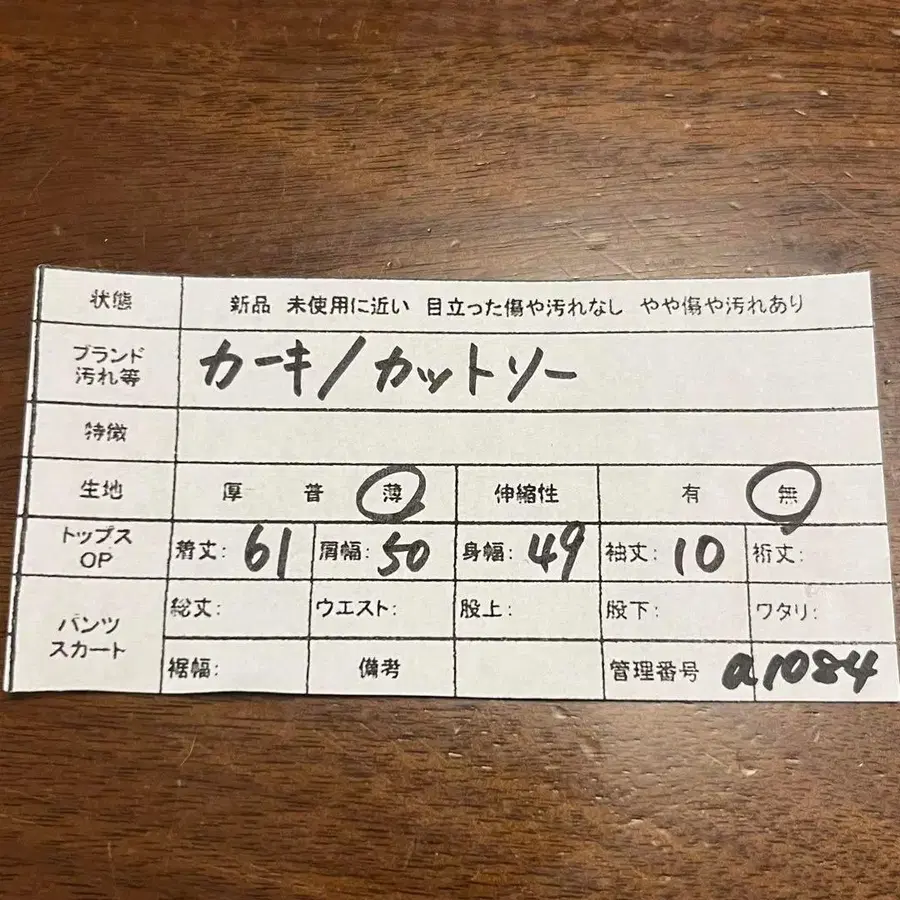 状態 新品 未使用に近い 目立った傷や汚れなし やや傷や汚れあり
ブランド
汚れ等 カーキ/カットソー
特徴
生地 厚 普 薄 伸縮性 有 無
トップス
OP 着丈: 61 肩幅: 50 身幅: 49 袖丈: 10 裄丈:
パンツ
スカート 総丈: ウエスト: 股上: 股下: ワタリ:
裾幅: 備考 管理番号 a1084